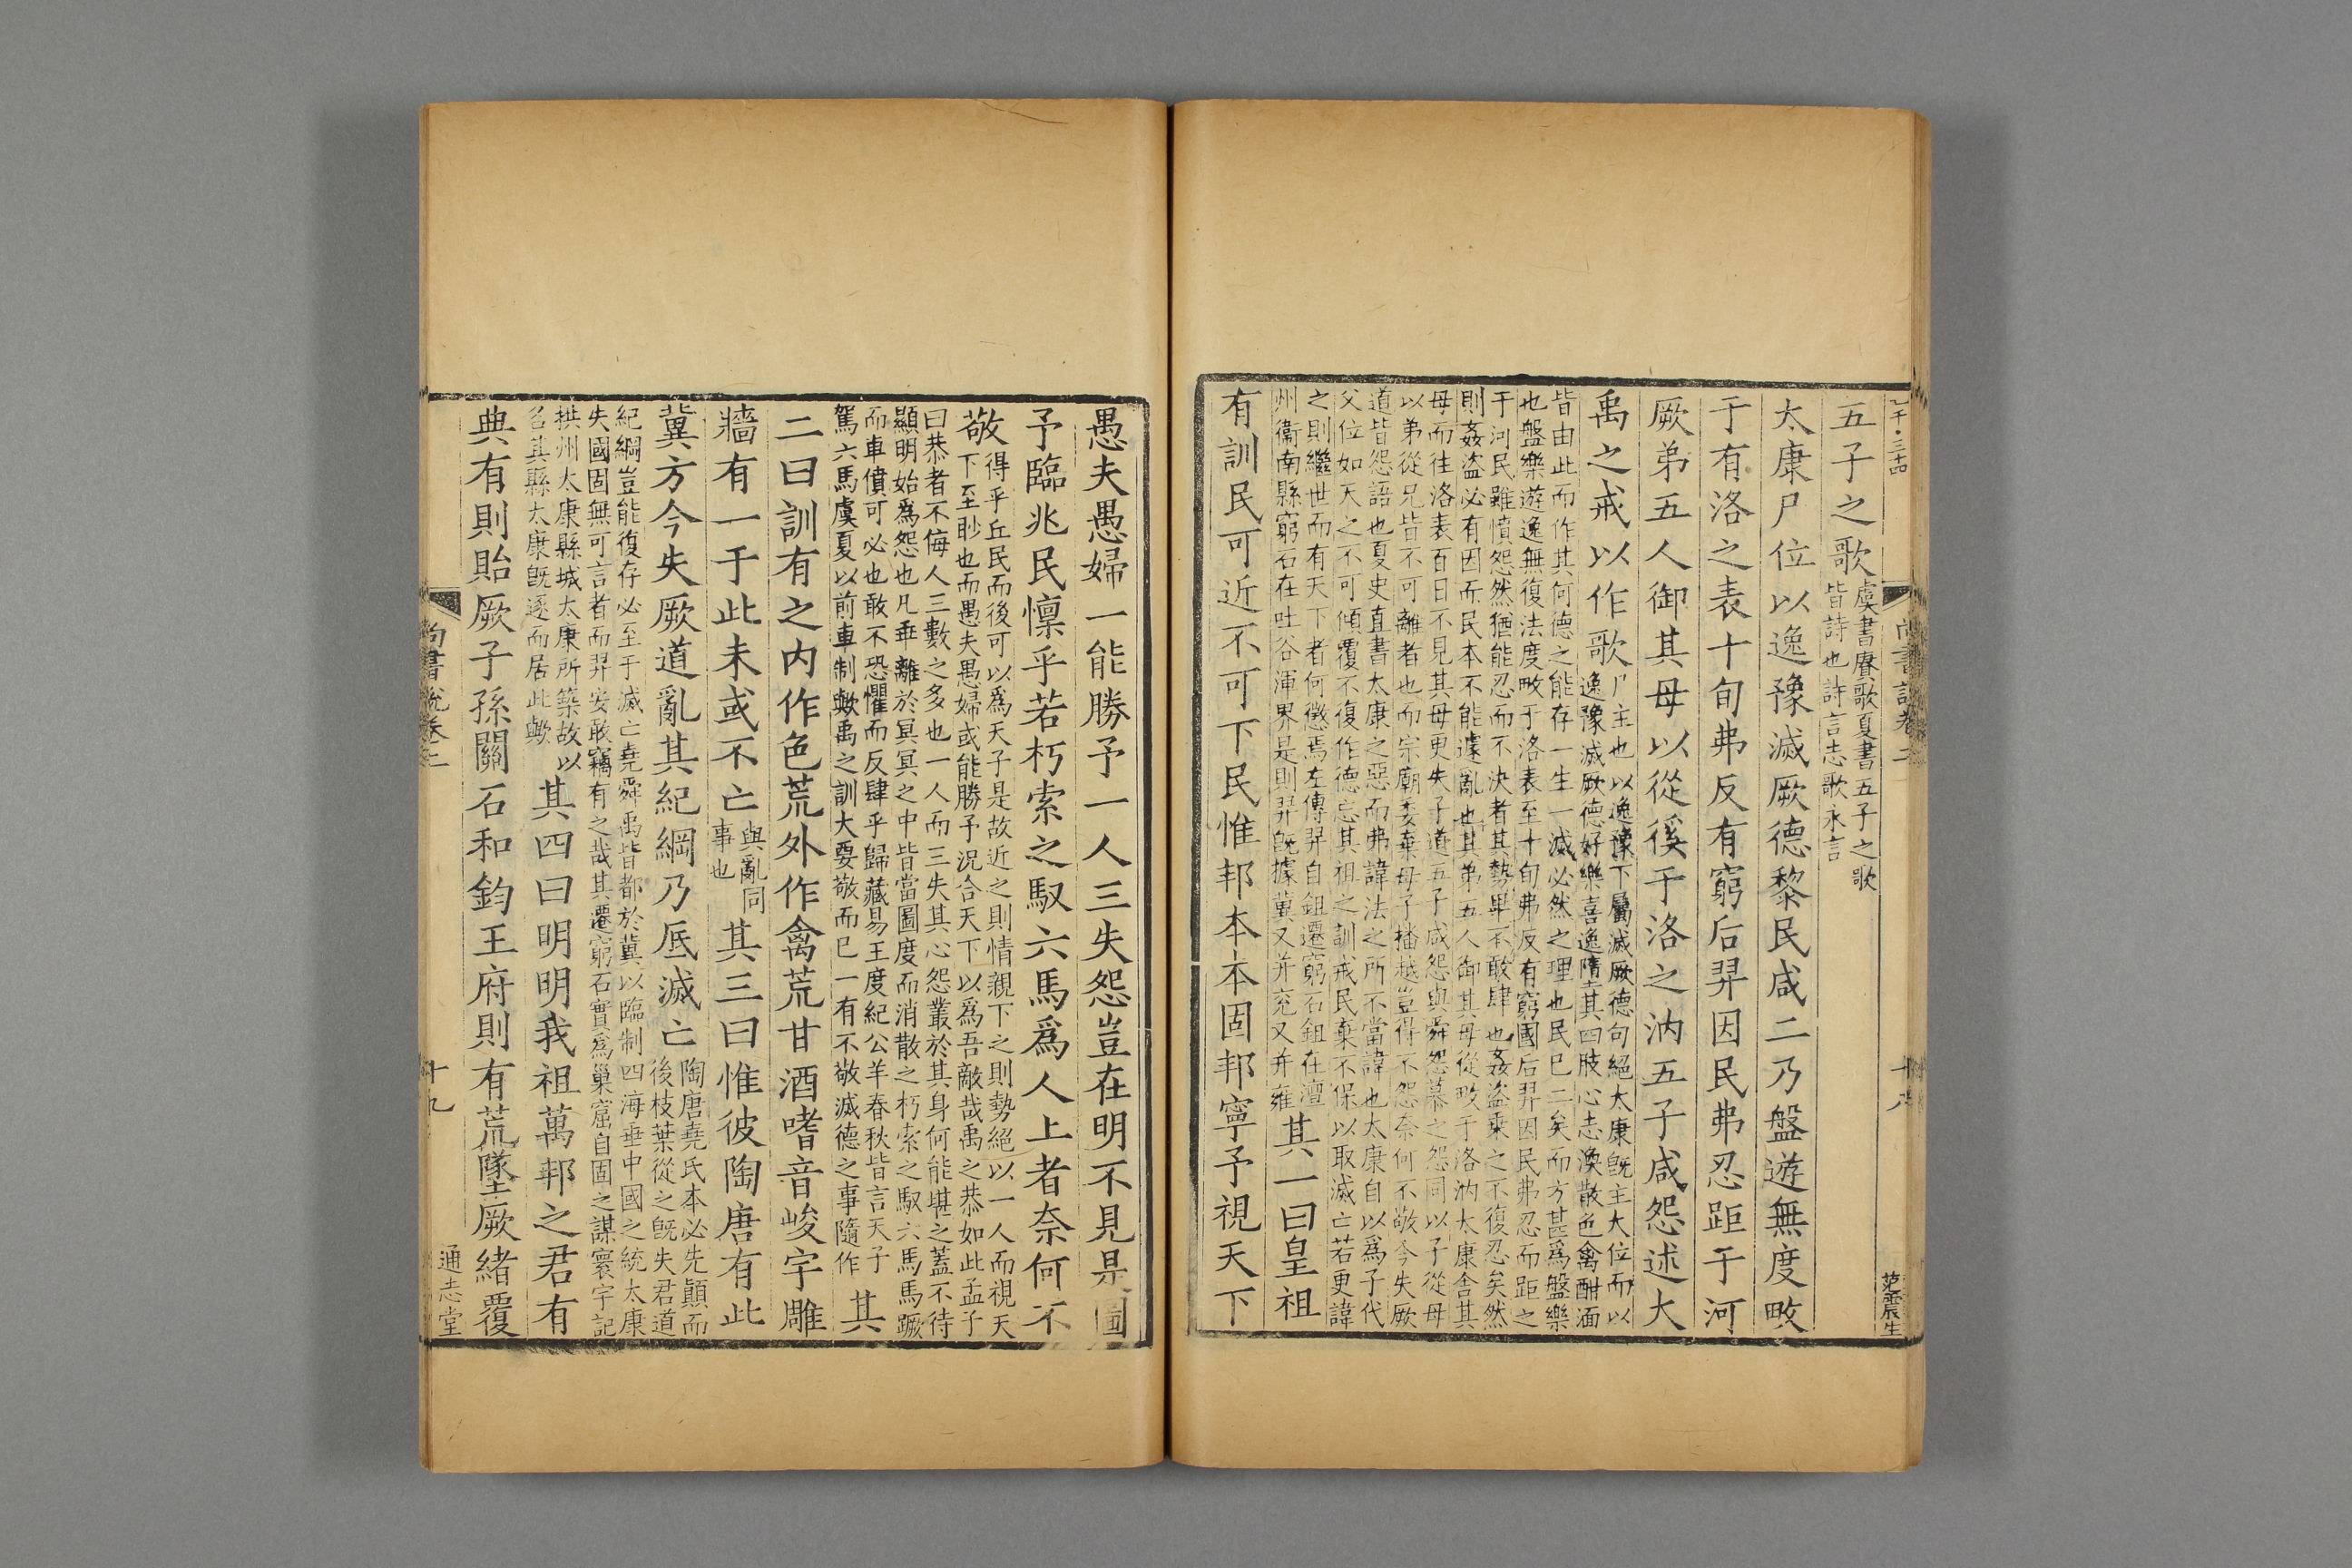 尚書說卷二
十八
范震生
五子之歌
虞書賡歌夏書五子之歌
皆詩也詩言志歌永言
太康尸位以逸豫滅厥德黎民咸二乃盤遊無度畋
于有洛之表十旬弗反有窮后羿因民弗忍距于河
厥弟五人御其母以從徯于洛之汭五子咸怨述大
禹之戒以作歌
尸主也以逸豫下屬滅厥德句絕太康旣主大位而以
逸豫滅厥德好樂喜逸隋其四肢心志渙散色禽酣湎
皆由此而作其何德之能存一生一滅必然之理也民已二矣而方甚爲盤樂
也盤樂遊逸無復法度畋于洛表至十旬弗反有窮國后羿因民弗忍而距之
于河民雖憤怨然猶能忍而不決者其勢畢不敢肆也姦盜乘之不復忍矣然
則姦盜必有因而民本不能遽亂也其弟五人御其母從畋于洛汭太康舍其
母而往洛表百日不見其母更失子道五子咸怨與舜怨慕之怨同以子從母
以弟從兄皆不可離者也而宗廟委棄母子播越豈得不怨奈何不敬今失厥
道皆怨語也夏史直書太康之惡而弗諱法之所不當諱也太康自以爲子代
父位如天之不可傾覆不復作德忘其祖之訓戒民棄不保以取滅亡若更諱
之則繼世而有天下者何懲焉左傳羿自鉏遷窮石鉏在澶
州衞南縣窮石在吐谷渾界是則羿旣據冀又并兗又并雍
其一曰皇祖
有訓民可近不可下民惟邦本本固邦寧予視天下
愚夫愚婦一能勝予一人三失怨豈在明不見是圖
予臨兆民懍乎若朽索之馭六馬爲人上者奈何不
敬
得乎丘民而後可以爲天子是故近之則情親下之則勢絕以一人而視天
下至眇也而愚夫愚婦或能勝予況合天下以爲吾敵哉禹之恭如此孟子
曰恭者不侮人三數之多也一人而三失其心怨叢於其身何能堪之蓋不待
顯明始爲怨也凡乖離於冥冥之中皆當圖度而消散之朽索之馭六馬馬蹶
而車僨可必也敢不恐懼而反肆乎歸藏易王度紀公羊春秋皆言天子
駕六馬虞夏以前車制歟禹之訓大要敬而已一有不敬滅德之事隨作
其
二曰訓有之內作色荒外作禽荒甘酒嗜音峻宇雕
牆有一于此未或不亡
與亂同
事也
其三曰惟彼陶唐有此
冀方今失厥道亂其紀綱乃底滅亡
陶唐堯氏本必先顚而
後枝葉從之旣失君道
紀綱豈能復存必至于滅亡堯舜禹皆都於冀以臨制四海垂中國之統太康
失國固無可言者而羿安敢竊有之哉其遷窮石實爲巢窟自固之謀寰宇記
拱州太康縣城太康所築故以
名其縣太康旣逐而居此歟
其四曰明明我祖萬邦之君有
典有則貽厥子孫關石和鈞王府則有荒墜厥緒覆
尚書說卷二
十九
通志堂